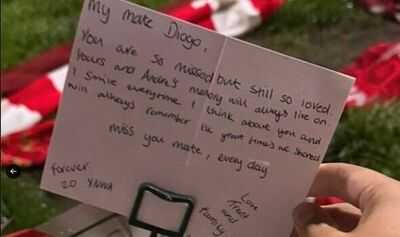 My mate Diogo,
You are so missed but still so loved.
Yours and Andre's memory will always live on.
I smile everytime I think about you and
will always remember the great times we shared
miss you mate, every day
forever
20 YNWA
Love
Trent
and
family